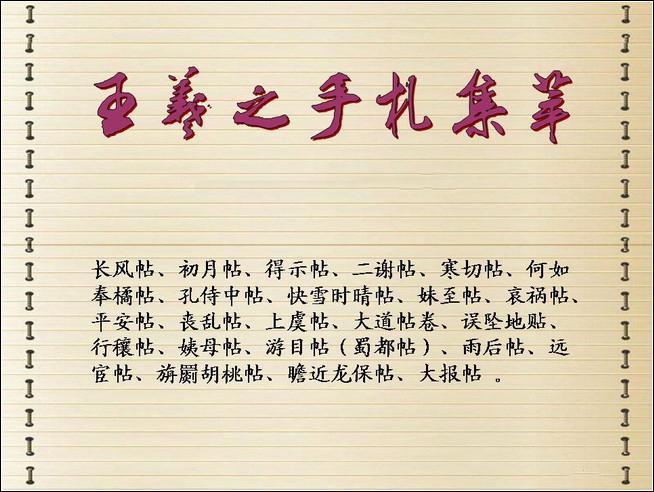 王羲之手札集萃
长风帖、初月帖、得示帖、二谢帖、寒切帖、何如
奉橘帖、孔侍中帖、快雪时晴帖、妹至帖、哀祸帖、
平安帖、丧乱帖、上虞帖、大道帖卷、误坠地贴、
行穰帖、姨母帖、游目帖（蜀都帖）、雨后帖、远
宦帖、旃罽胡桃帖、瞻近龙保帖、大报帖 。